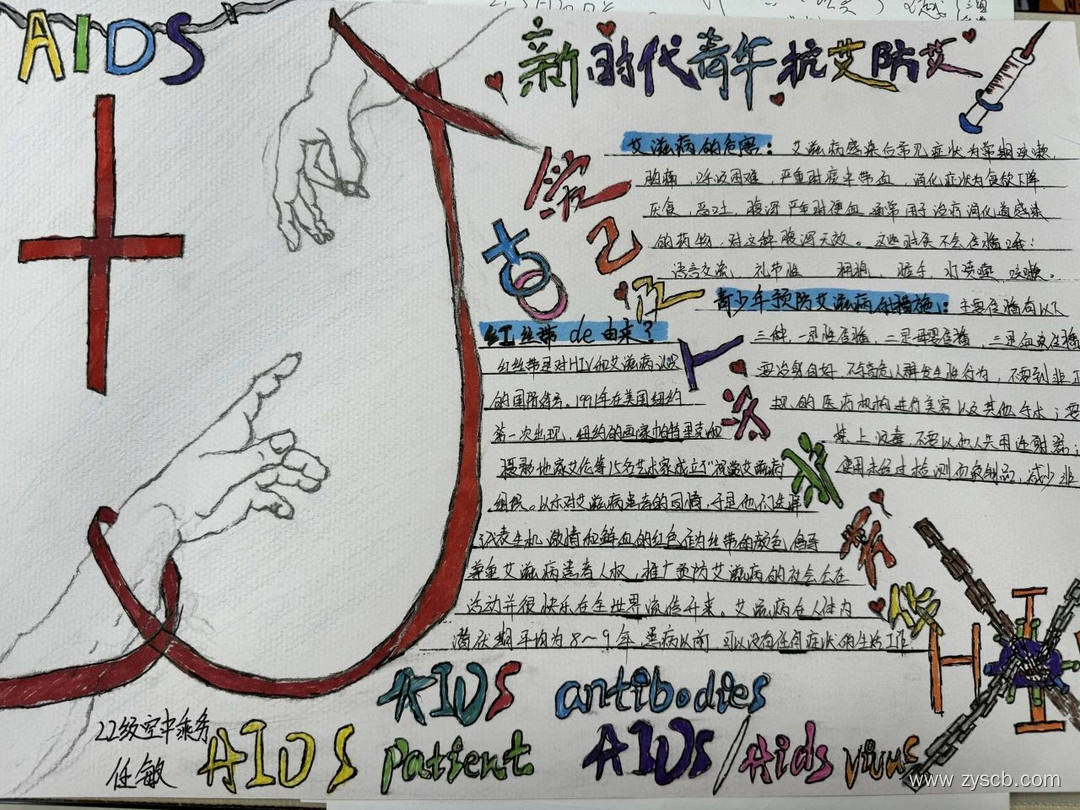 AIDS
新时代青年抗艾防艾
艾滋病的危害：艾滋病感染后常见症状为常期咳嗽，
胸痛，呼吸困难，严重时痰中带血，消化症状为食欲下降
厌食，恶吐，腹泻严重时便血 通常用于治疗消化道感染
的药物，对这种腹泻无效。这些时候不会传播哦：
语言交流 礼节性 拥抱 握手，水喷嚏 咳嗽。
青少年预防艾滋病的措施：主要传播有以下
三种，一是性传播，二是母婴传播，三是血液传播
要洁身自好 不与高危人群发生性行为，不要到非正
规的医疗机构进行美容以及其他手术；要
染上吸毒，不要以他人共用注射器；
使用未经过检测血液制品，减少非
红丝带de由来？
红丝带是对HIV和艾滋病认识
的国际符号，1991年在美国纽约
第一次出现，纽约的画家帕特里克和
摄影地家艾伦等15名艺术家成立了"视觉艾滋病"
组织。以示对艾滋病患者的同情，于是他们选择
代表生机 激情和鲜血的红色作为丝带的颜色
尊重艾滋病患者人权，推广预防艾滋病的社会公在
活动并很快乐在全世界流传开来。艾滋病在人体内
潜伏期平均为8～9年 患病以前 可以没有任何症状的生活工作
AIDS antibodies
AIDS patient AIDS/Aids virus
HIV
22级空中乘务
任敏
www.zyscb.com